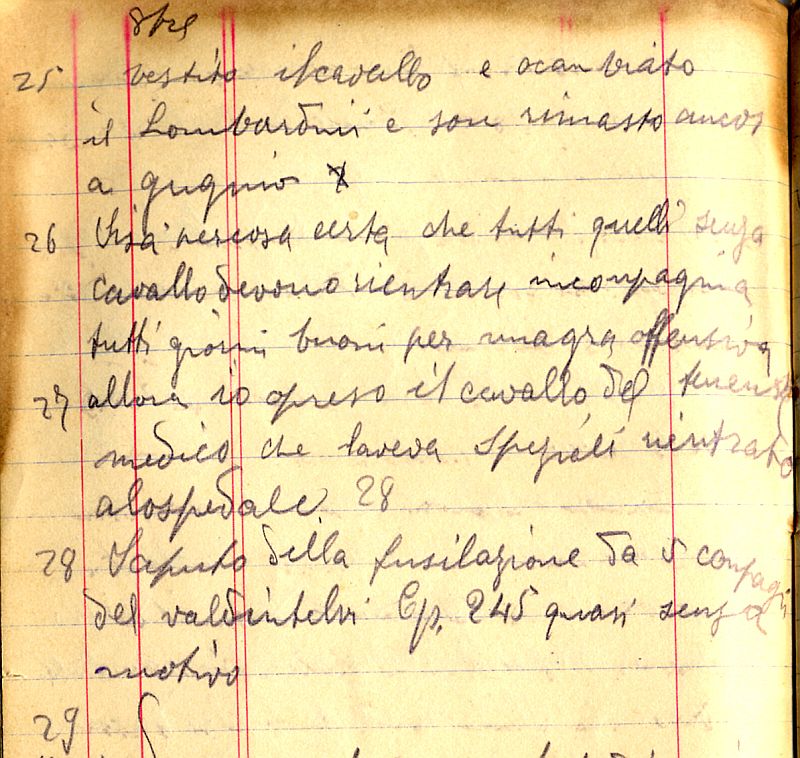 25 vestito il cavallo e ocanbiato
il Lombardini e son rimasto ancor
a giugnio
26 Sisa percosa certa che tutti quelli senza
cavallo devono rientrare inconpagnia
tutti giorni buoni per unagra offensiva
27 allora io opreso il cavallo del tenente
medico che laveva Speziali rientrato
alospedale 28
28 Saputo della fusilazione da 5 conpagni
del valdintelvi Cp. 245 quasi senza
motivo
29